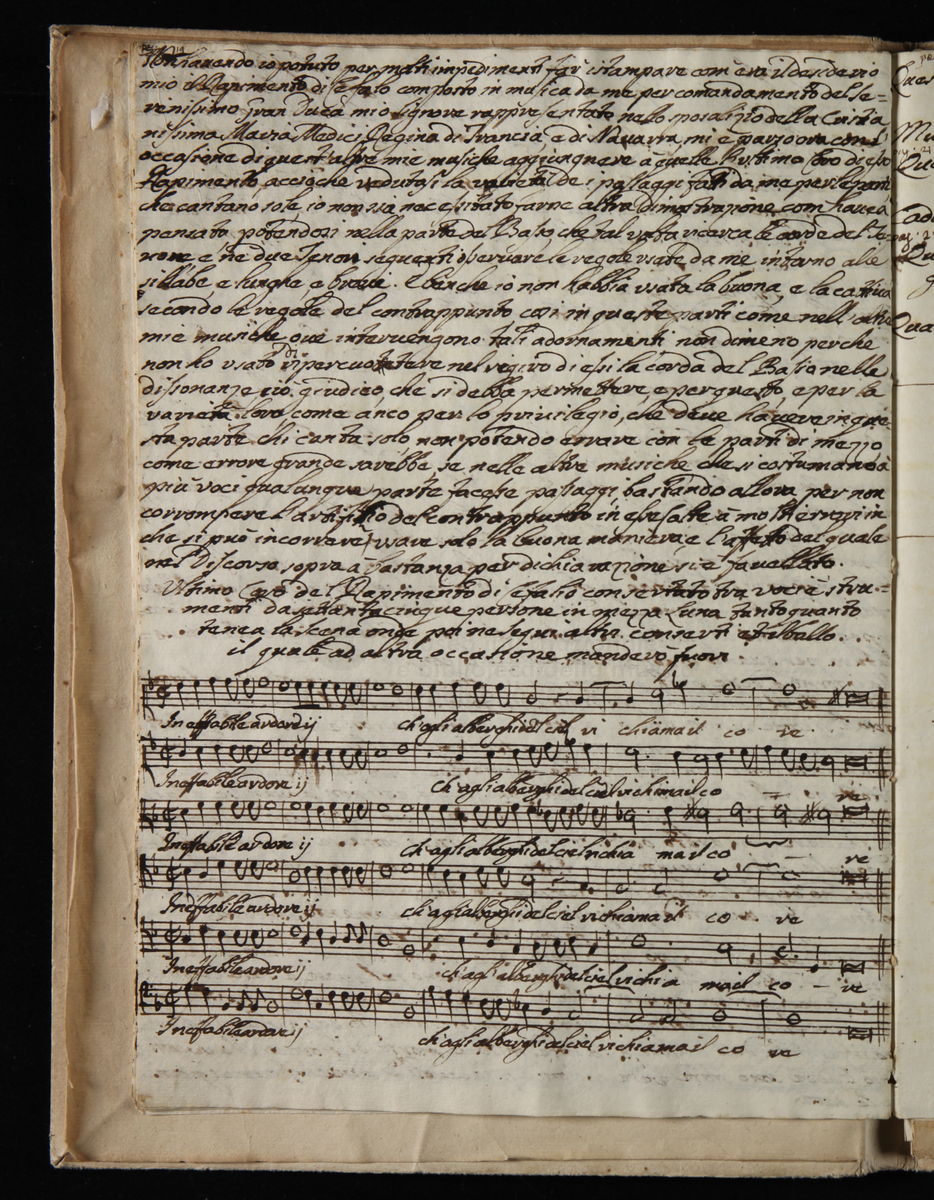 Non havendo io potuto per molti impedimenti far istampare com'era il desiderio
mio il Rapimento di Cefalo composto in musica da me per comandamento del Se=
renissimo gran Duca mio signore rappresentato nello sposalizio della Cristia
nissima Maria Medici Regina di Francia e di Navarra, mi è parso ora con l'
occasione di quest'altre mie musiche aggiungnere a quelle l'ultimo coro di esso
Rapimento acciò che vedutasi la varietà de i passaggi fatti da me per le parti
che cantano sole, io non sia necessitato farne altra dimostrazione com havea
pensato potendosi nella parte del Basso che tal volta ricerca le corde del Te
nore e ne due Tenori sequenti osservare le regole usate da me intorno alle
sillabe e lunghe e brevi. E benche io non habbia usata la buona, e la cattiva
secondo le regole del contrappunto così in queste parti come nell'altre
mie musiche ove intervengono tali adornamenti non dimeno perche
non ho usato di ripercuotere nel regiro di essi la corda del Basso nelle
dissonanze ciò giudico, che si debba permettere, e per questo, e per la
varietà loro come anco per lo privilegio, che deve havere in que=
sta parte chi canta solo non potendo errare con le parti di mezzo
come errore grande sarebbe, se nelle altre musiche che si costumano à
più voci qualunque parte facesse passaggi bastando allora per non
corrompere l'artifitio del contrappunto in esse folte à molti errori in
che si può incorrere, usare solo la buona maniera, e l'affetto del quale
nel Discorso sopra à bastanza per dichiarazione si è favellato.
Ultimo Coro del Rapimento di Cefalo consertato tra voci è stru=
menti da settanta cinque persone in meza luna tanto quanto
tenea la scena onde poi ne seguì altri conserti et il ballo.
il quale ad altra occasione manderò fuori.
Ineffabile ardore ij ch'agli alberghi del ciel vi chiama il co re
Ineffabile ardore ij ch'agli alberghi del ciel vi chima il co re
Ineffabile ardore ij ch'agli alberghi del ciel vi chia ma il co re
Ineffabile ardore ij ch'agli alberghi del ciel vi chiama il co re
Ineffabile ardore ij ch'agli alberghi del ciel vi chia ma il co re
Ineffabile ardore ij ch'agli alberghi del ciel vi chiama il co re